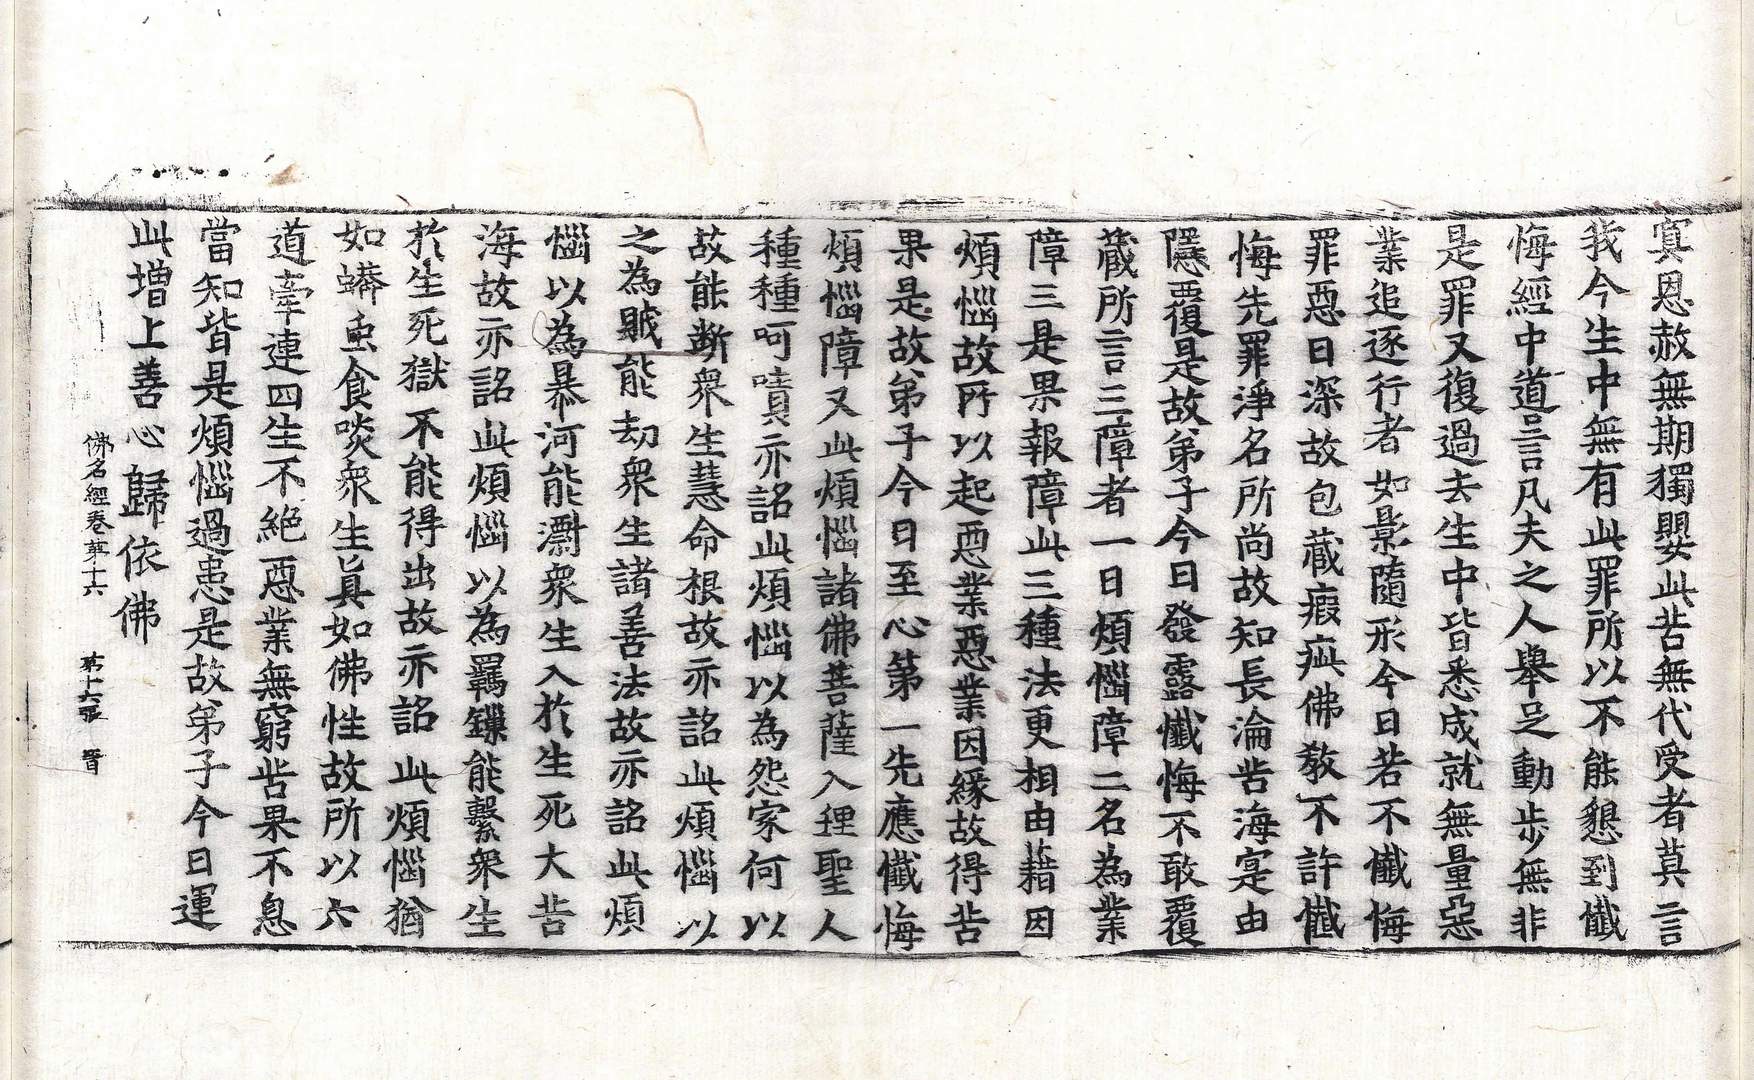 寘恩赦無期獨嬰此苦無代受者莫言
我今生中無有此罪所以不能懇到懺
悔經中道言凡夫之人舉足動步無非
是罪又復過去生中皆悉成就無量惡
業追逐行者如影隨形今日若不懺悔
罪惡日深故包藏瑕疵佛教不許懺
悔先罪淨名所尚故知長淪苦海寔由
隱覆是故弟子今日發露懺悔不敢覆
藏所言三障者一曰煩惱障二名為業
障三是果報障此三種法更相由藉因
煩惱故所以起惡業惡業因緣故得苦
果是故弟子今日至心第一先應懺悔
煩惱障又此煩惱諸佛菩薩入理聖人
種種呵嘖亦詺此煩惱以為怨家何以
故能斷衆生慧命根故亦詺此煩惱以
之為賊能劫衆生諸善法故亦詺此煩
惱以為暴河能漂衆生入於生死大苦
海故亦詺此煩惱以為羈鏁能繫衆生
於生死獄不能得出故亦詺此煩惱猶
如蟒虫食啖衆生旨真如佛性故所以六
道牽連四生不絶惡業無窮苦果不息
當知皆是煩惱過患是故弟子今日運
此增上善心歸依佛
佛名經卷第十六 第十六張